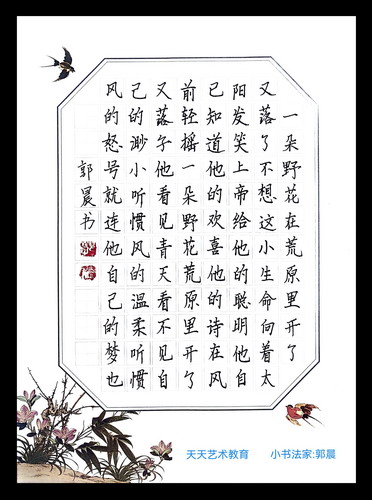 一朵野花在荒原里开了
又落了不想这小生命向着太
阳发笑上帝给他的聪明他自
已知道他的欢喜他的诗在风
前轻摇一朵野花荒原里开了
又落子他看见青天看不见自
己的渺小听惯风的温柔听惯
风的怒号就连他自己的梦也
郭晨书
天天艺术教育 小书法家:郭晨